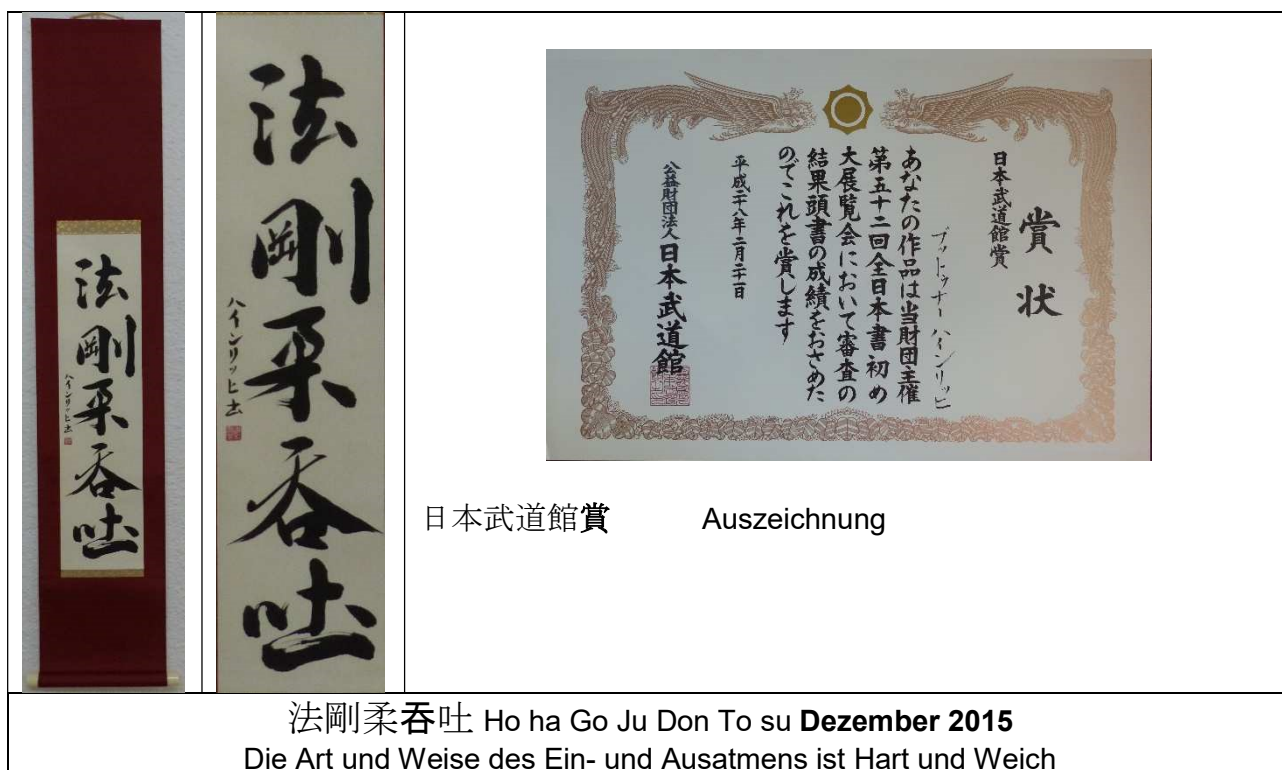 法剛柔呑吐
ハインリッヒ
法剛柔呑吐
ハインリッヒ
賞状
日本武道館賞
ブットゥナー ハインリッヒ
あなたの作品は当財団主催
第五十二回全日本書初め
大展覧会において審査の
結果頭書の成績をおさめた
のでこれを賞します
平成二十八年二月二十一日
公益財団法人 日本武道館
日本武道館賞 Auszeichnung
法剛柔呑吐 Ho ha Go Ju Don To su Dezember 2015
Die Art und Weise des Ein- und Ausatmens ist Hart und Weich